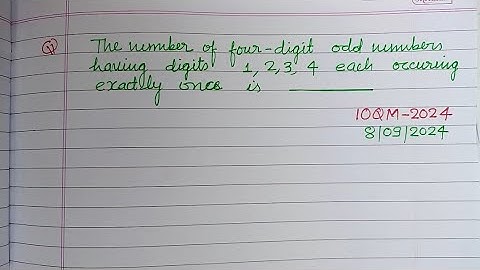 Q
The number of four-digit odd numbers
having digits 1, 2, 3, 4 each occuring
exactly once is
IOQM-2024
8/09/2024